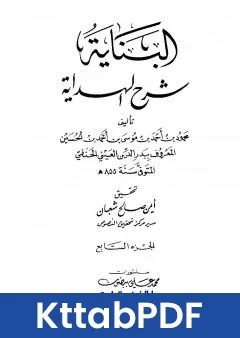 البناية
شرح الهداية
تأليف
محمود بن أحمد بن موسى بن أحمد بن الحسين
المعروف ببدر الدين العيني الحنفي
المتوفى سنة ٨٥٥ هـ
تحقيق
أيمن صالح شعبان
مدير مركز تحقيق النصوص
الجزء السابع
منشورات
محمد علي بيضون
KttabPDF